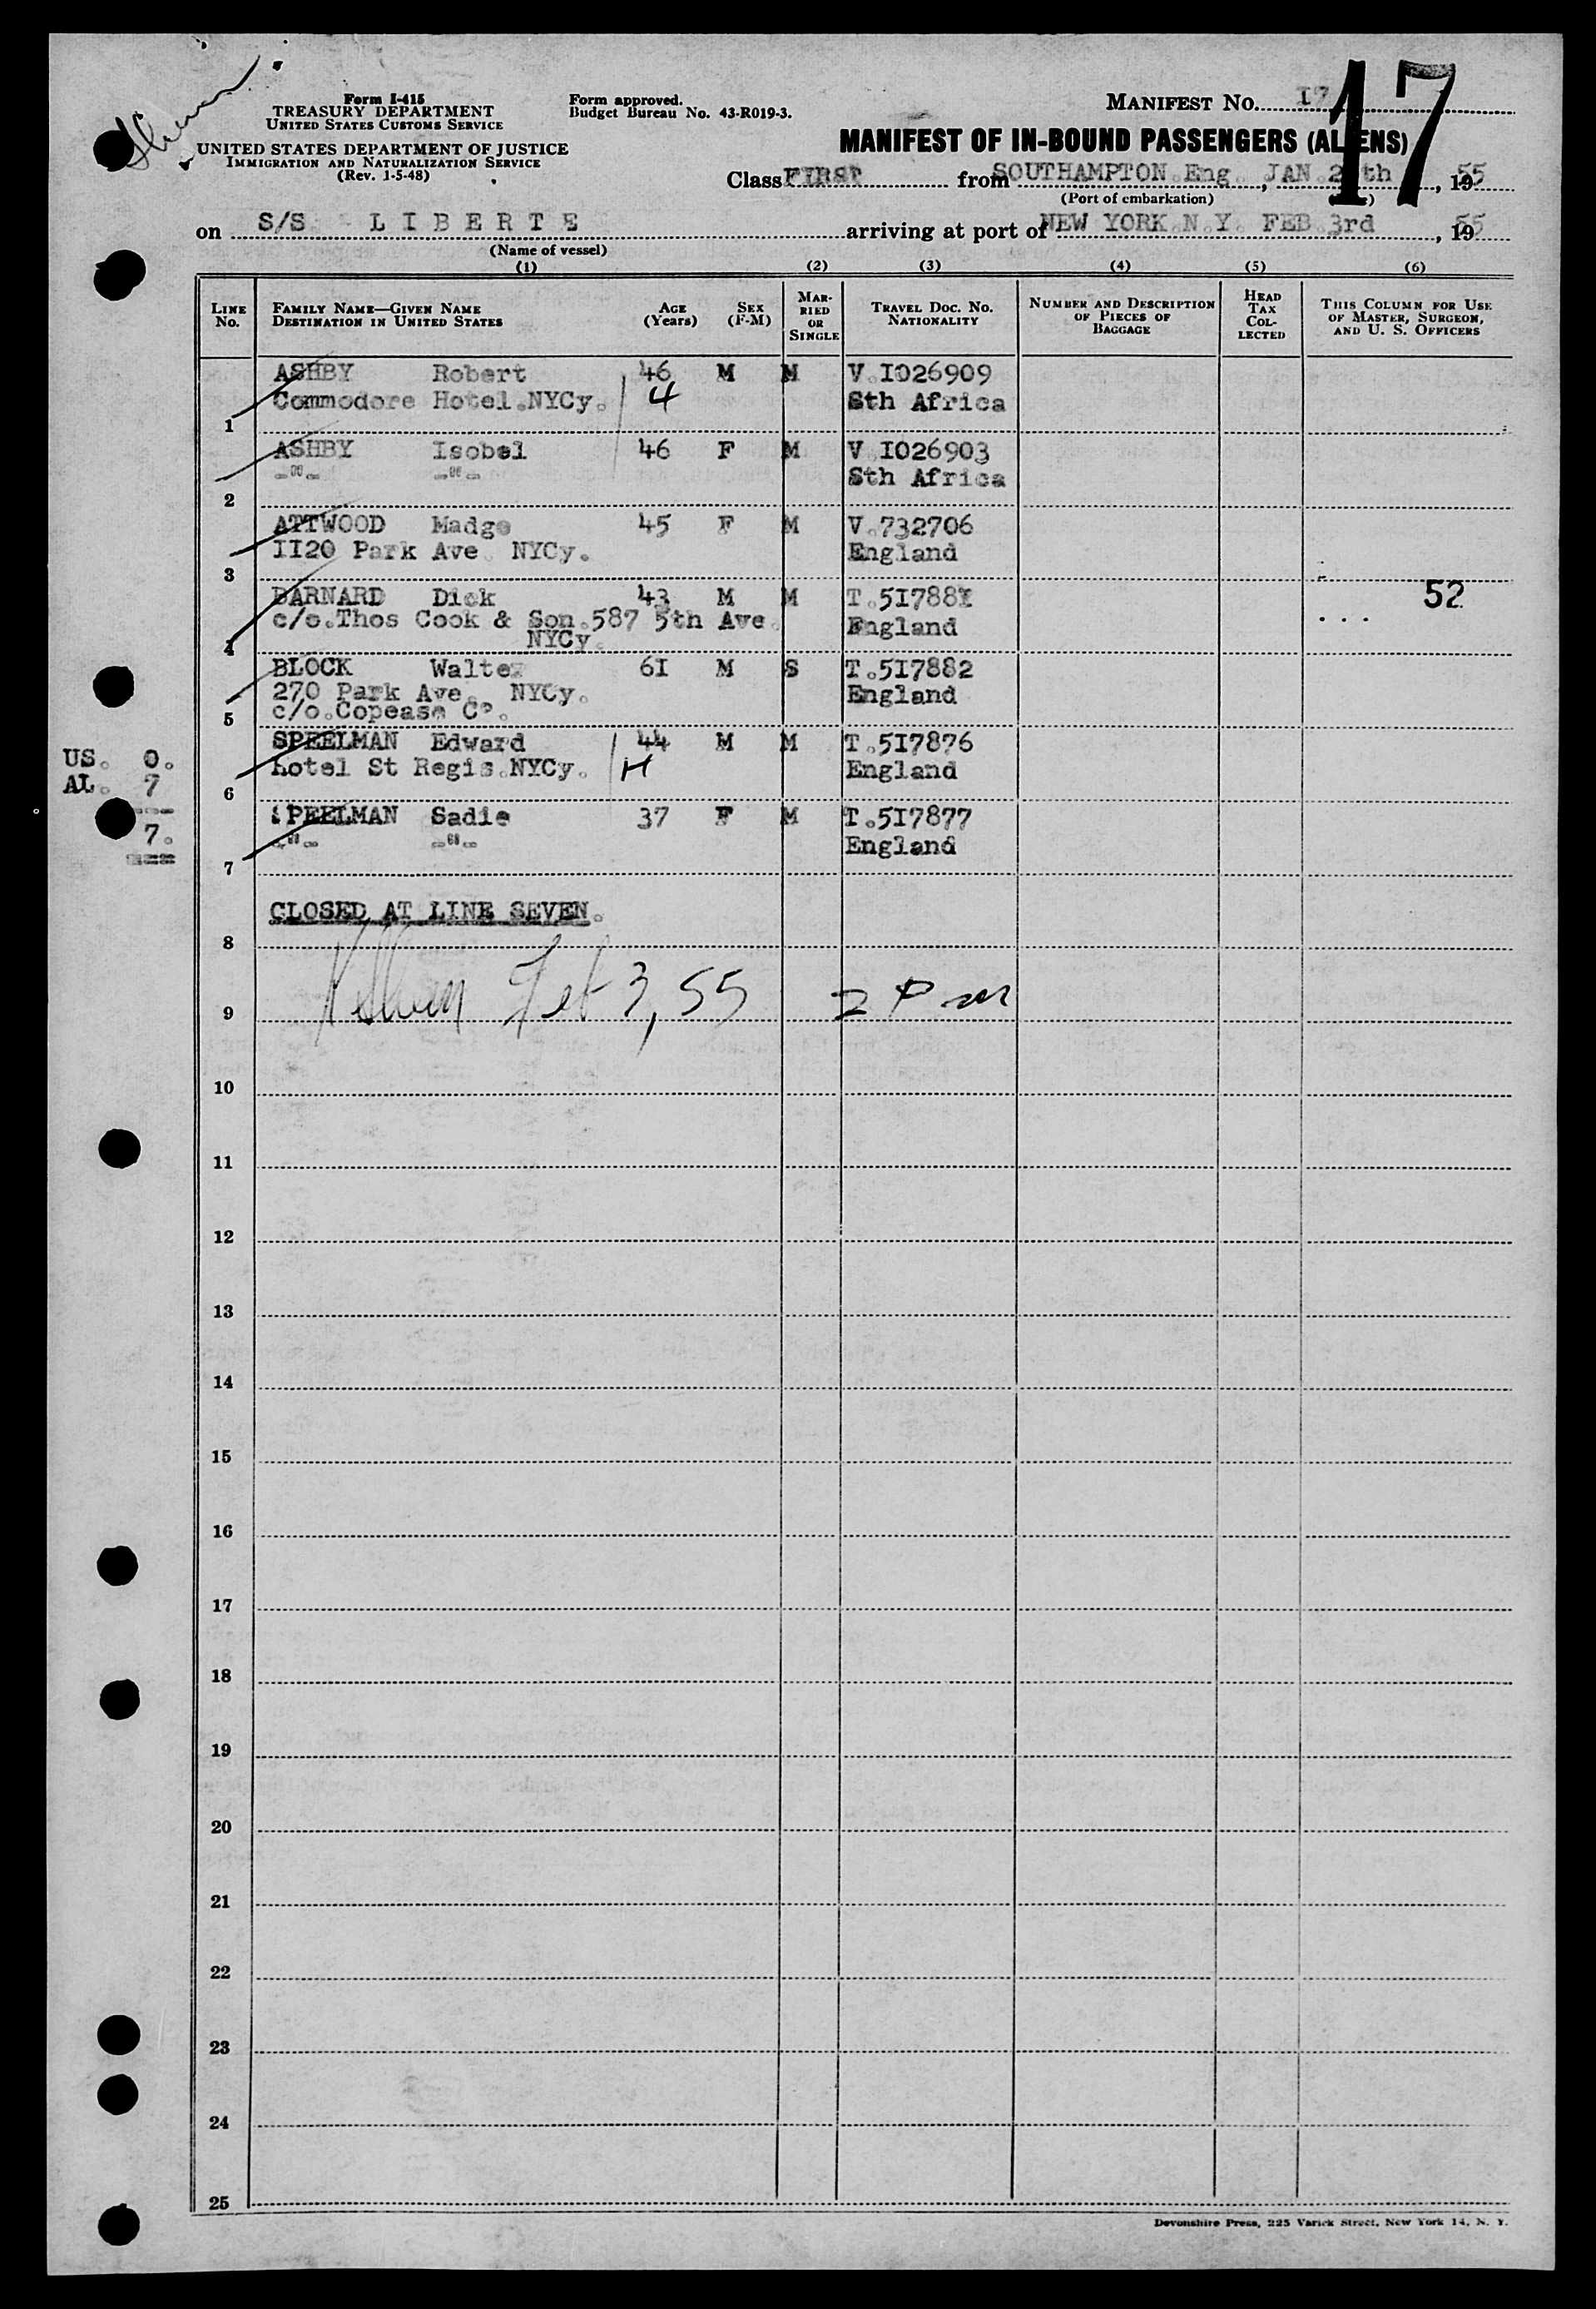 Form I-415
TREASURY DEPARTMENT
UNITED STATES CUSTOMS SERVICE
UNITED STATES DEPARTMENT OF JUSTICE
IMMIGRATION AND NATURALIZATION SERVICE
(Rev. 1-5-48)
Form approved.
Budget Bureau No. 43-R019-3.
MANIFEST NO. 17
17
MANIFEST OF IN-BOUND PASSENGERS (ALIENS)
Class FIRST from SOUTHAMPTON.Eng., JAN. th, 1955
(Port of embarkation)
on S/S LIBERTE arriving at port of NEW YORK.N.Y. FEB.3rd, 1955
(Name of vessel)
(1) (2) (3) (4) (5) (6)
LINE No. FAMILY NAME—GIVEN NAME DESTINATION IN UNITED STATES AGE (Years) SEX (F-M) MARRIED OR SINGLE TRAVEL DOC. NO. NATIONALITY NUMBER AND DESCRIPTION OF PIECES OF BAGGAGE HEAD TAX COLLECTED THIS COLUMN FOR USE OF MASTER, SURGEON, AND U. S. OFFICERS
ASHBY Robert 46 M M V.I026909
Commodore Hotel.NYCy. 4 Sth Africa
1
ASHBY Isobel 46 F M V I026903
-"- -"- Sth Africa
2
ATTWOOD Madge 45 F M V.732706
II20 Park Ave NYCy. England
3
BARNARD Dick 43 M M T.5I788I 52
c/o.Thos Cook & Son.587 5th Ave. England
4 NYCy.
BLOCK Walter 6I M S T.5I7882
270 Park Ave. NYCy. England
5 c/o.Copease Co.
SPEELMAN Edward 44 M M T.5I7876
US. 0. hotel St Regis.NYCy. H England
AL. 7 6
SPEELMAN Sadie 37 F M T.5I7877
7. -"- -"- England
7
CLOSED AT LINE SEVEN.
8
9 Feb 3, 55 2 PM
10
11
12
13
14
15
16
17
18
19
20
21
22
23
24
25
Devonshire Press, 225 Varick Street, New York 14, N. Y.